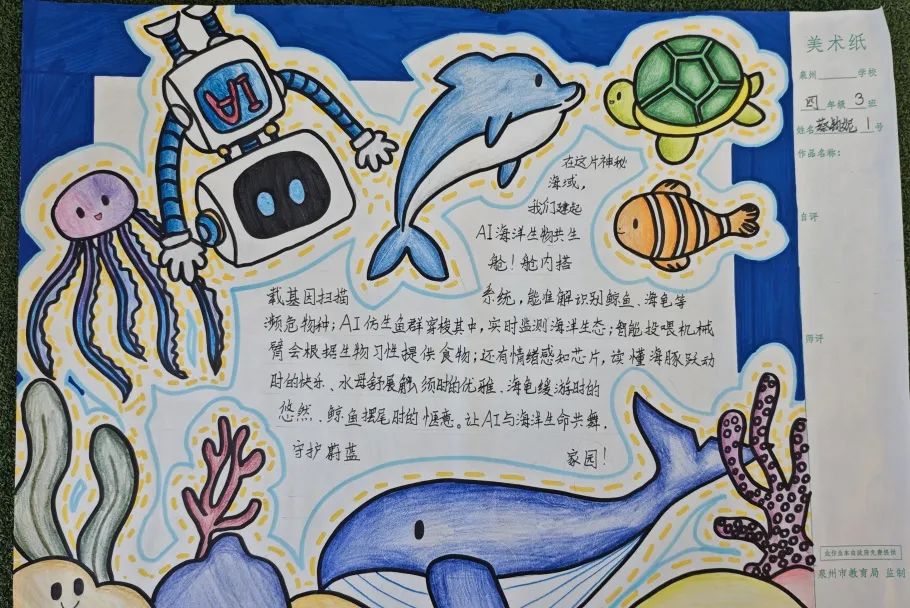 AI
在这片神秘
海域，
我们建起
AI海洋生物共生
舱！舱内搭
载基因扫描 系统，能准解识别鲸鱼、海龟等
濒危物种；AI仿生鱼群穿梭其中，实时监测海洋生态；智能投喂机械
臂会根据生物习性提供食物；还有情绪感知芯片，读懂海豚跃动
时的快乐、水母舒展触须时的优雅、海龟缓游时的
悠然、鲸鱼摆尾时的惬意。让AI与海洋生命共舞，
守护蔚蓝 家园！
美术纸
泉州 学校
四年级3班
姓名蔡 妮1号
作品名称：
自评
师评
泉州市教育局 监制